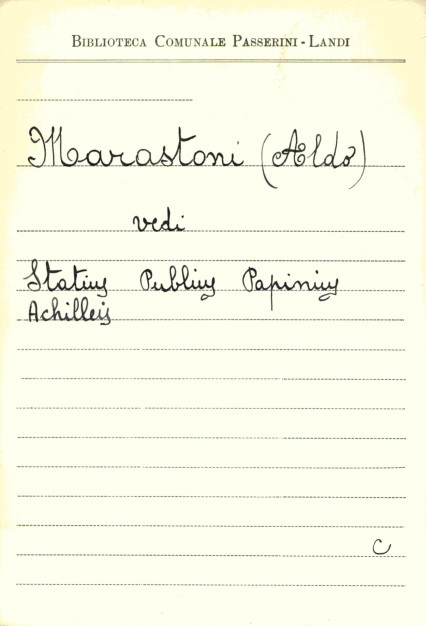 BIBLIOTECA COMUNALE PASSERINI-LANDI
Marastoni (Aldo)
vedi
Statius Publius Papinius
Achilleis
C